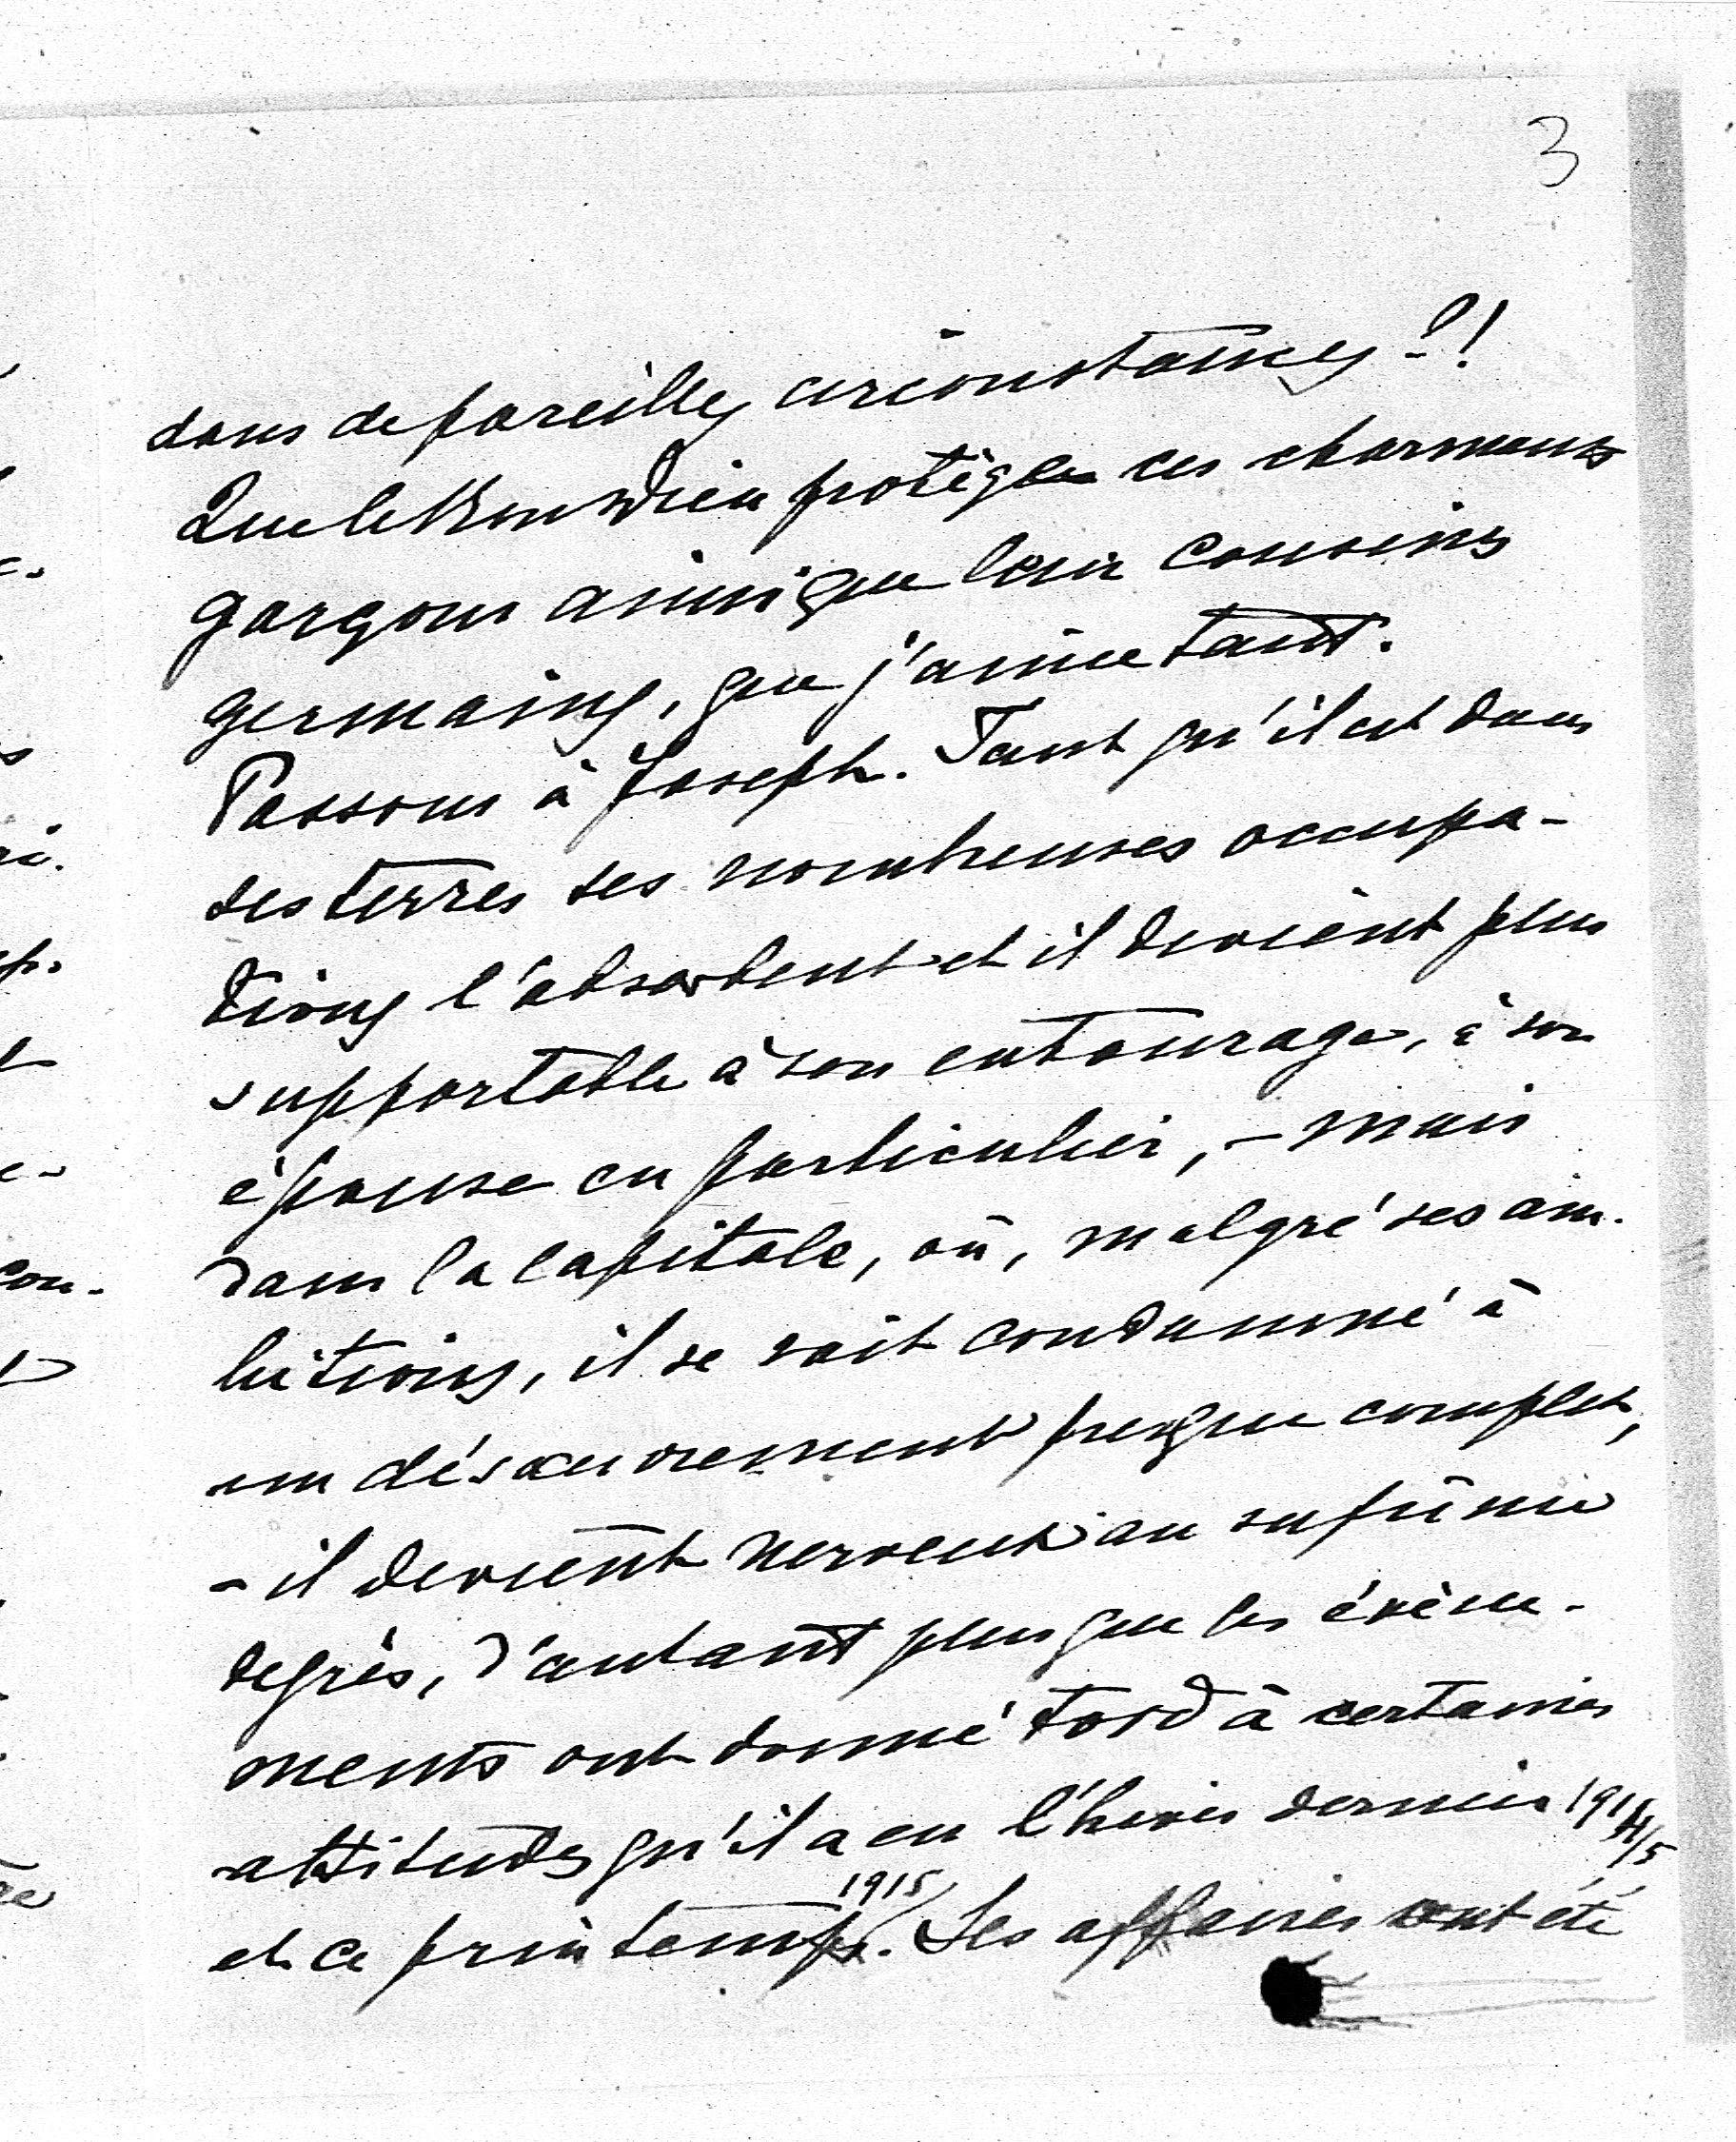 3
dans de pareilles circonstances?!
Que le Bon Dieu protège ces charmants
garçons ainsi que leur cousins
germains, que j'aime tant.
Passons à Joseph. Tant qu'il est dans
ses terres ses nombreuses occupa-
tions l'absorbent et il devient plus
supportable à son entourage, à son
épouse en particulier, – mais
dans la capitale, où, malgré ses am-
bitions, il se voit condamné à
un désœuvrement presque complet,
– il devient nerveux au suprême
degrès, d'autant plus que les évène-
ments ont donné tord à certaines
attitudes qu'il a eu l'hiver dernier 1914/5
et ce printemps 1915. Ses affaires ont été